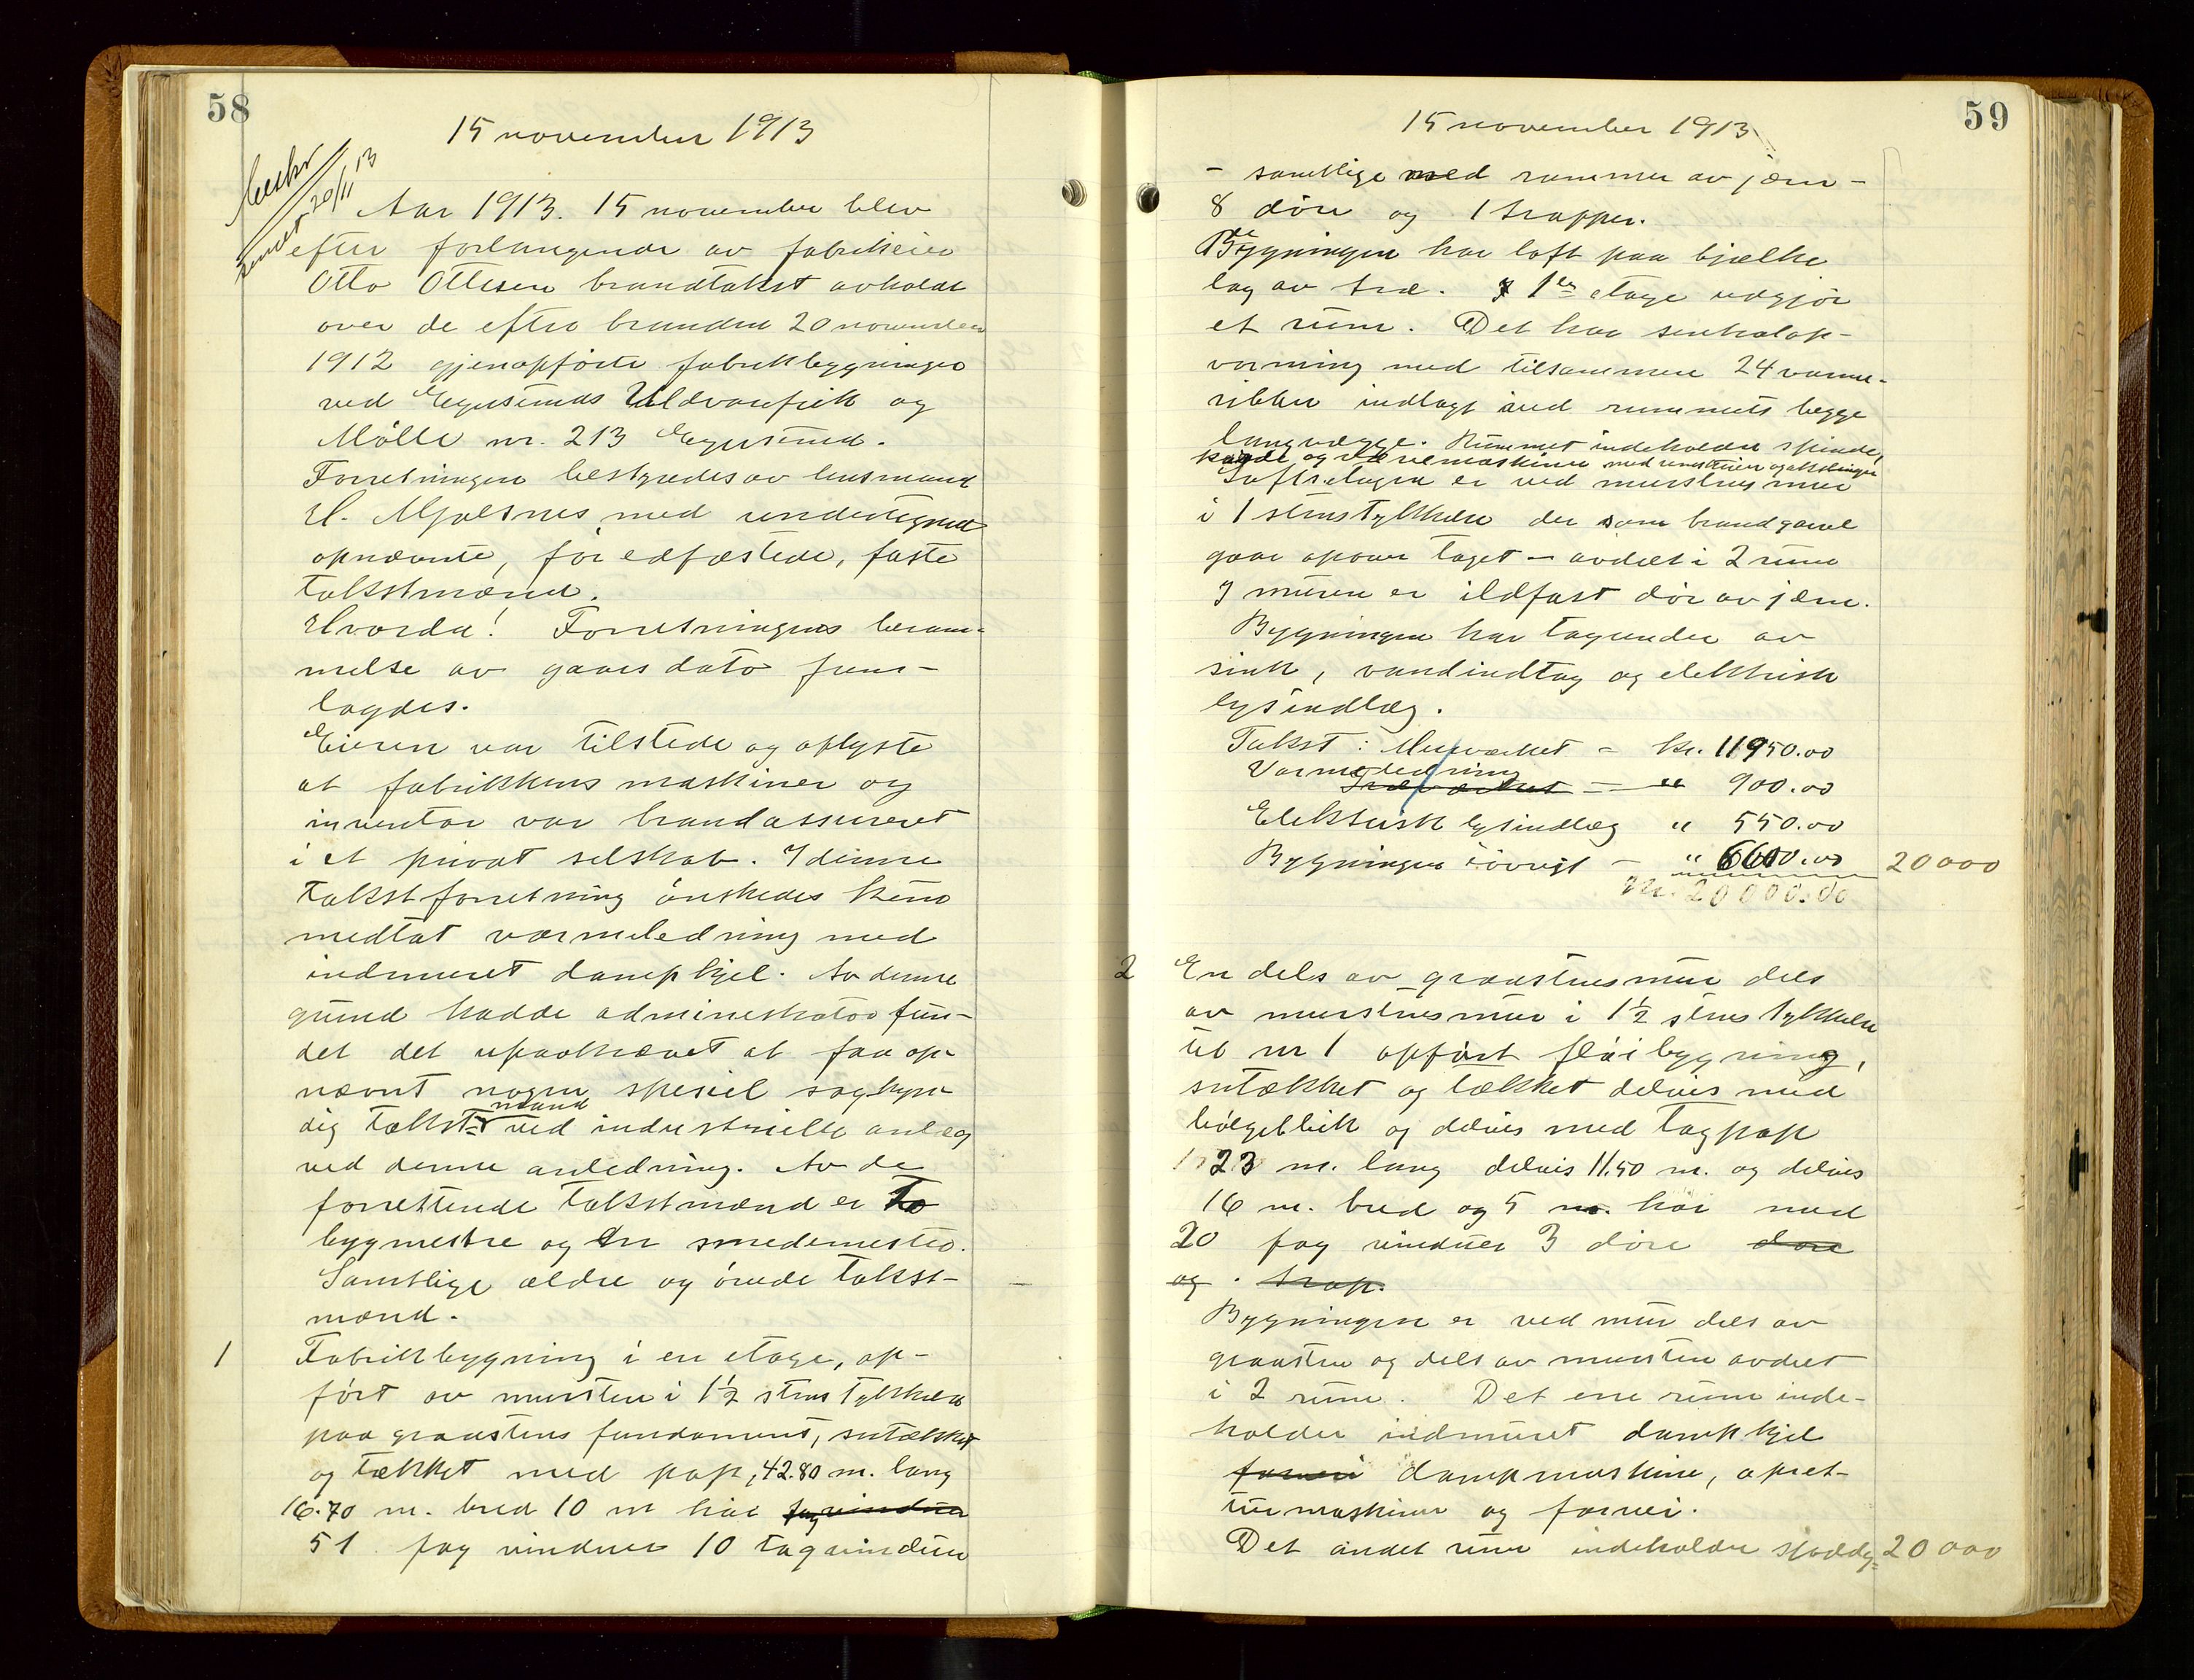 58
15 november 1913
20/11 13
Aar 1913. 15 november blev
efter forlangende av fabrikeier
Otto Ollesen brandtakst avholdt
over de efter branden 20 november
1912 gjenopførte fabrikbygninger
ved Egersunds Uldvarefrik og
Mølle nr. 213 Egersund.
Forretningen bestyredes av lensmand
H. Mjølsnes med undertegnede
opnævnte, før edfæstede, faste
takstmænd.
Hvorda! Forretningens beram-
melse av gaars dato frem-
lagdes.
Eieren var tilstede og oplyste
at fabrikkens maskiner og
inventar var brandassureret
i et privat selskab. I denne
takstforretning ønskedes kun
medtat varmeledning med
indmuret dampkjel. Av denne
grund hadde administrator fun-
det det upaakrævet at faa op-
nævnt nogen spesiel sagkyn-
dig takstmand ved industrielle anlæg
ved denne anledning. Av de
forrettende takstmænd er to
bygmestre og en smedemester.
Samtlige ældre og øvede takst-
mænd.
1 Fabrikbygning i en etage, op-
ført av mursten i 1½ stens tykkelse
paa graastens fundament, sutækket
og tækket med pap, 42.80 m. lang
16.70 m. bred 10 m høi fag vinduer
51 fag vinduer 10 tagvinduer
59
15 november 1913
- samtlige med rammer av jern -
8 døre og 1 trapper.
Bygningen har loft paa bjælke
lag av træ. 1ste etage udgjør
et rum. Det har sentralop-
varming med tilsammen 24 varme-
ribber indlagt ved rummets begge
langvægge. Rummet indeholder spinde,
karde og vævemaskiner med remskiver og akslinger
Loftsetagen er ved murstens mur
i 1 stens tykkelse der som brandgavl
gaar opover taget - avdelt i 2 rum
I muren er ildfast dør av jern.
Bygningen har tagrender av
sink, vandindtag og elektrisk
lysindlæg.
Takst: Murværket - kr. 11950.00
Varmeledning
Træværket - " 900.00
Elektrisk lysindlæg " 550.00
Bygningen iøvrigt - " 6600.00 20000
Kr. 20000.00
2 En dels av graastensmur dels
av murstensmur i 1½ stens tykkelse
til nr 1 opført fløibygning,
sutækket og tækket delvis med
bølgeblik og delvis med tagpap
23 m. lang delvis 11.50 m. og delvis
16 m. bred og 5 m. høi med
20 fag vinduer 3 døre døre
og . trap.
Bygningen er ved mur dels av
graasten og dels av mursten avdelt
i 2 rum. Det ene rum inde-
holder indmuret dampkjel
farveri dampmaskine, apret-
turmaskiner og farveri.
Det andet rum indeholder skoddy- 20000